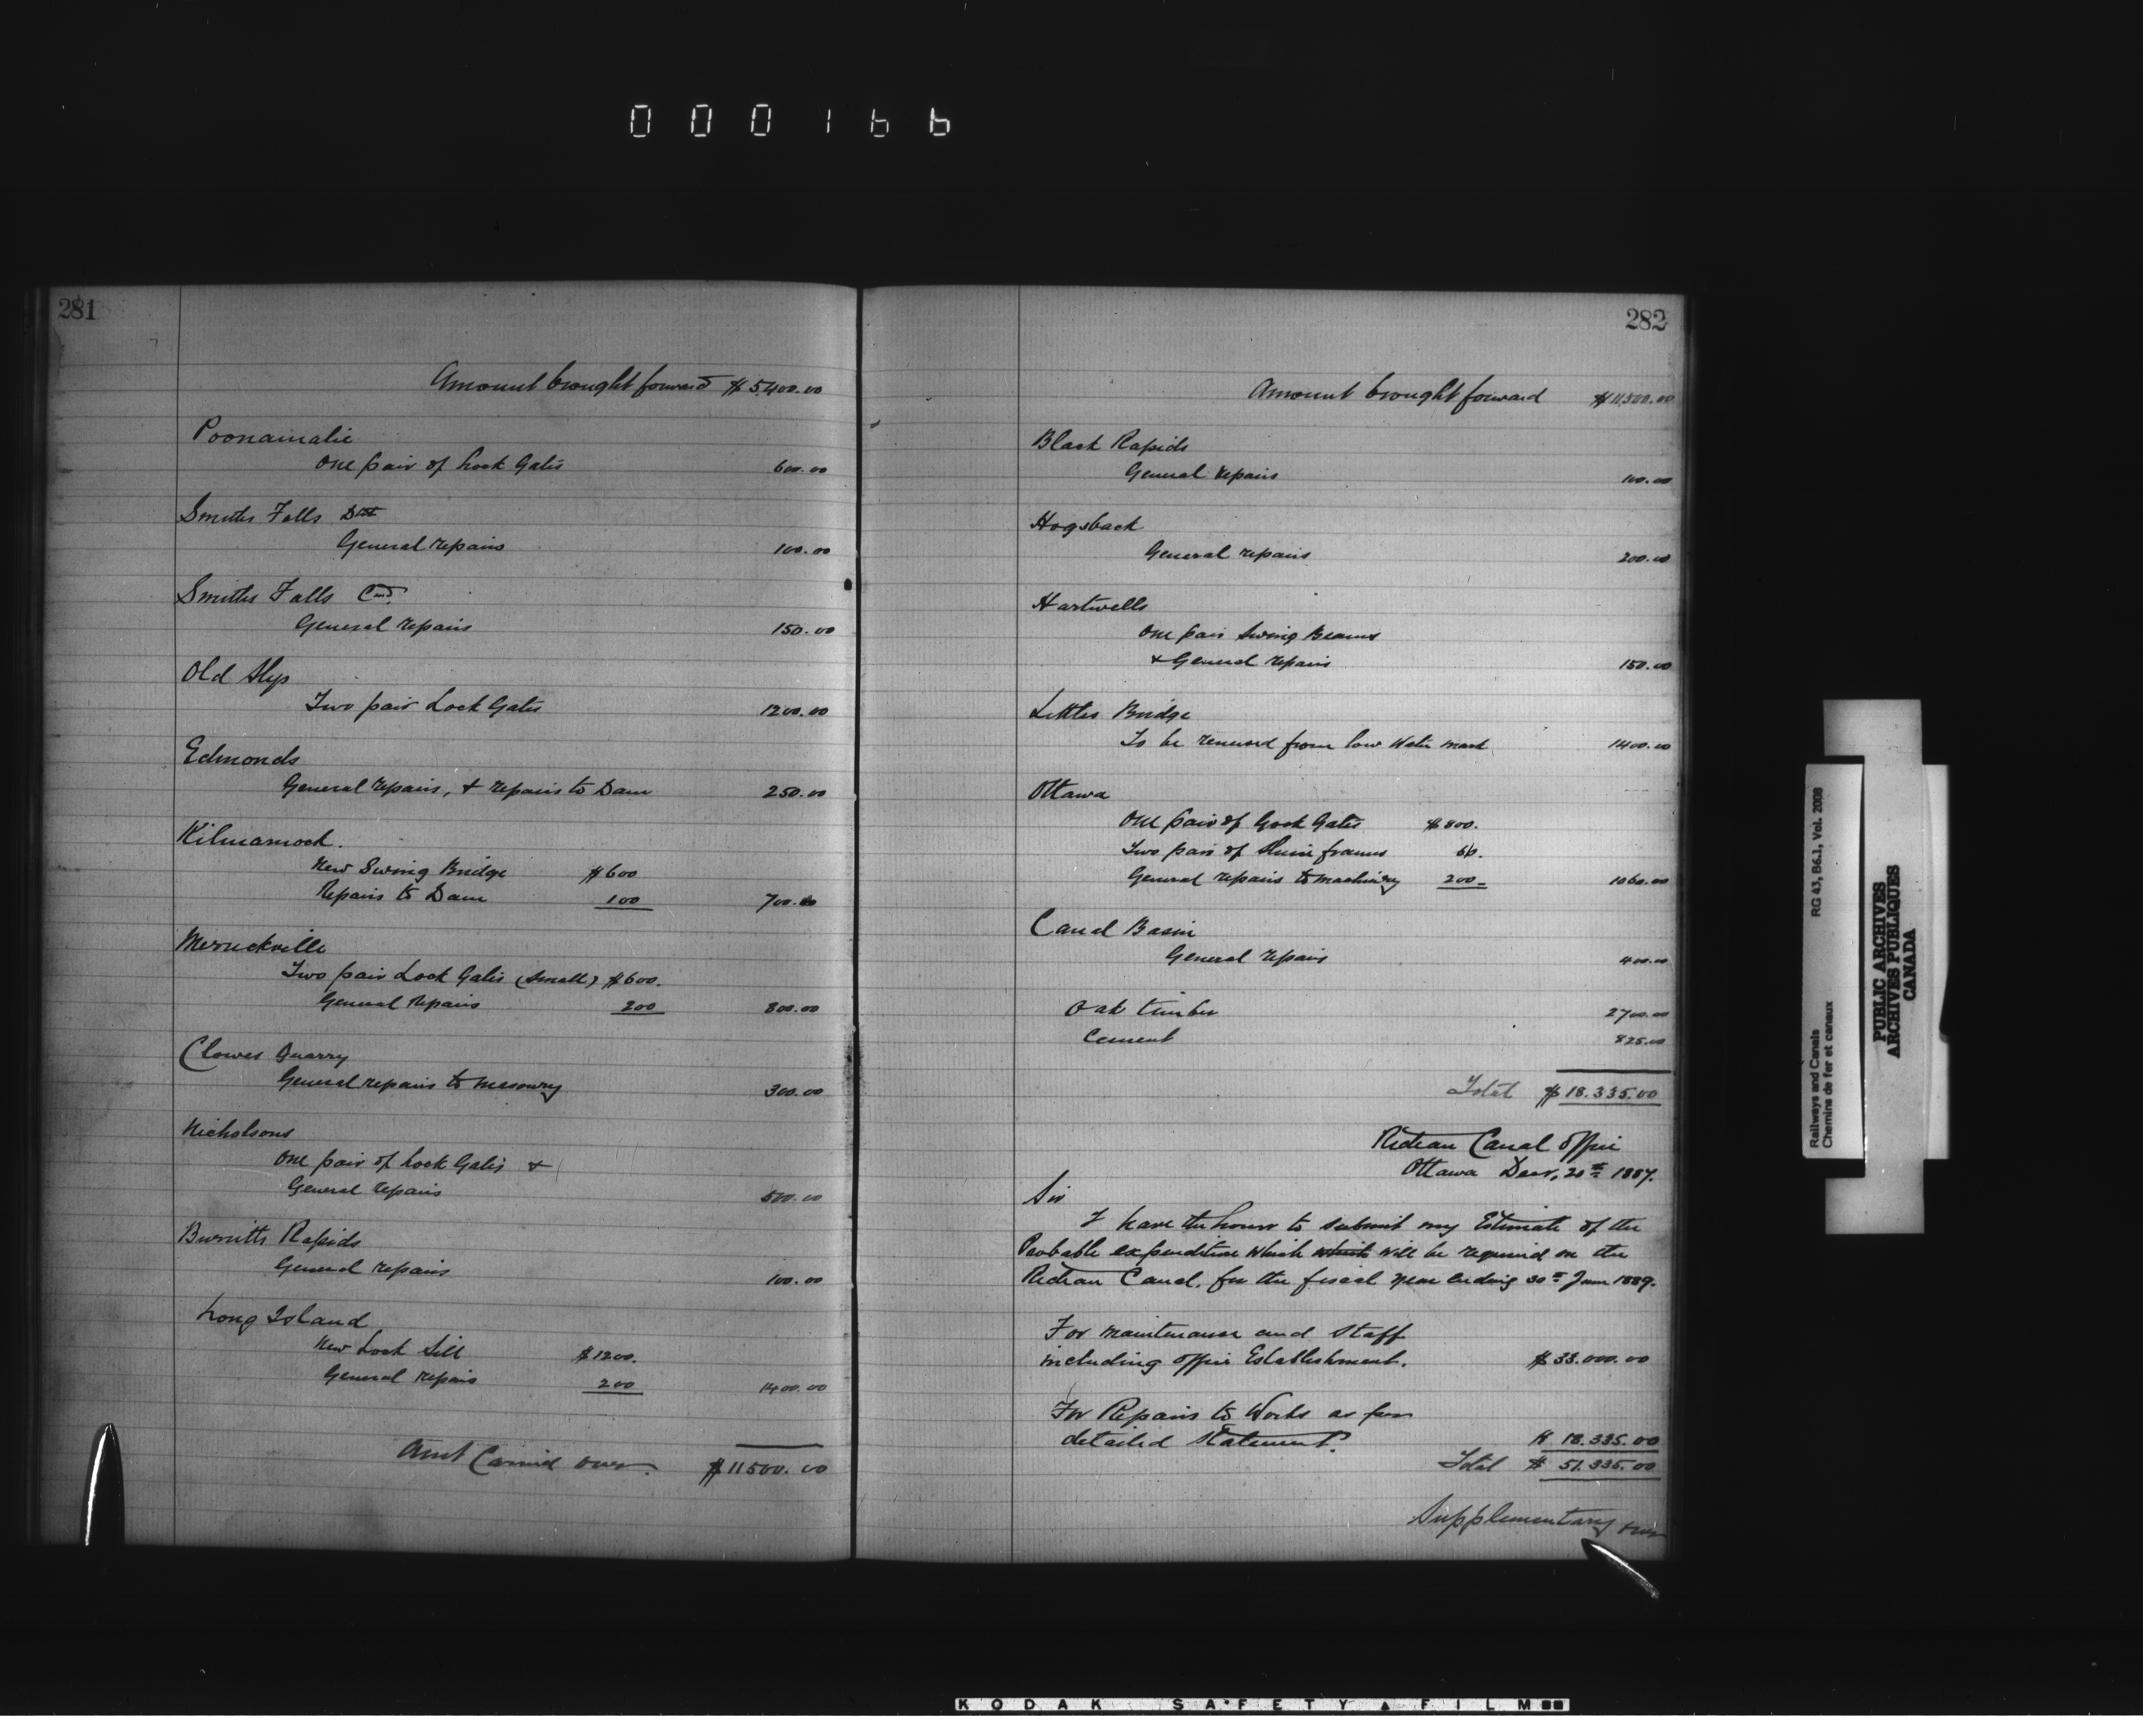 000166
281
Amount brought forward $5,400.00
Poonamalie
One pair of Lock Gates 600.00
Smiths Falls Det
General repairs 100.00
Smiths Falls Cmd.
General repairs 150.00
Old Slys
Two pair Lock Gates 1200.00
Edmonds
General repairs, & repairs to Dam 250.00
Kilmarnock.
New Swing Bridge $600
Repairs to Dam 100 700.00
Merrickville
Two pair Lock Gates (small) $600.
General repairs 200 800.00
Clowes Quarry
General repairs to masonry 300.00
Nicholsons
One pair of Lock Gates &
General repairs 500.00
Burritts Rapids
General repairs 100.00
Long Island
New Lock Sill $1200.
General repairs 200 1400.00
Amt Carried over. $11500.00
282
Amount brought forward $11,500.00
Black Rapids
General repairs 100.00
Hogsback
General repairs 200.00
Hartwells
One pair Swing Beams
& General repairs 150.00
Littles Bridge
To be renewed from low water mark 1400.00
Ottawa
One pair of Lock Gates $800.
Two pair of Sluice frames 60.
General repairs to machinery 200- 1060.00
Canal Basin
General repairs 400.00
Oak timber 2700.00
Cement 825.00
Total $18.335.00
Rideau Canal Office
Ottawa Decr, 20th 1887.
Sir
I have the honor to submit my Estimate of the
Probable expenditure which which will be required on the
Rideau Canal, for the fiscal year ending 30th June 1889.
For maintenance and Staff
including office Establishment. $33.000.00
For Repairs to Works as per
detailed statement. $ 18.335.00
Total $ 51.335.00
Supplementary over
Railways and Canals RG 43, B6.1, Vol. 2008
Chemins de fer et canaux
PUBLIC ARCHIVES
ARCHIVES PUBLIQUES
CANADA
KODAK SAFETY FILM